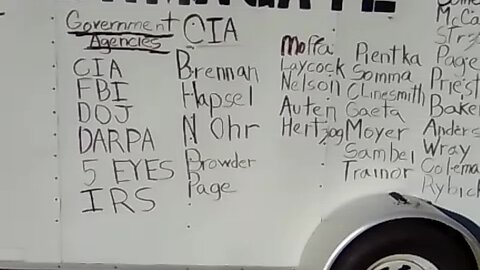 Government
Agencies
CIA
FBI
DOJ
DARPA
5 EYES
IRS
CIA
Brennan
Hapsel
N Ohr
Browder
Page
Moffa
Laycock
Nelson
Auten
Hertzog
Pientka
Somma
Clinesmith
Gaeta
Moyer
Sambel
Trainor
McCa
Strz
Page
Priest
Baker
Anders
Wray
Colema
Rybick